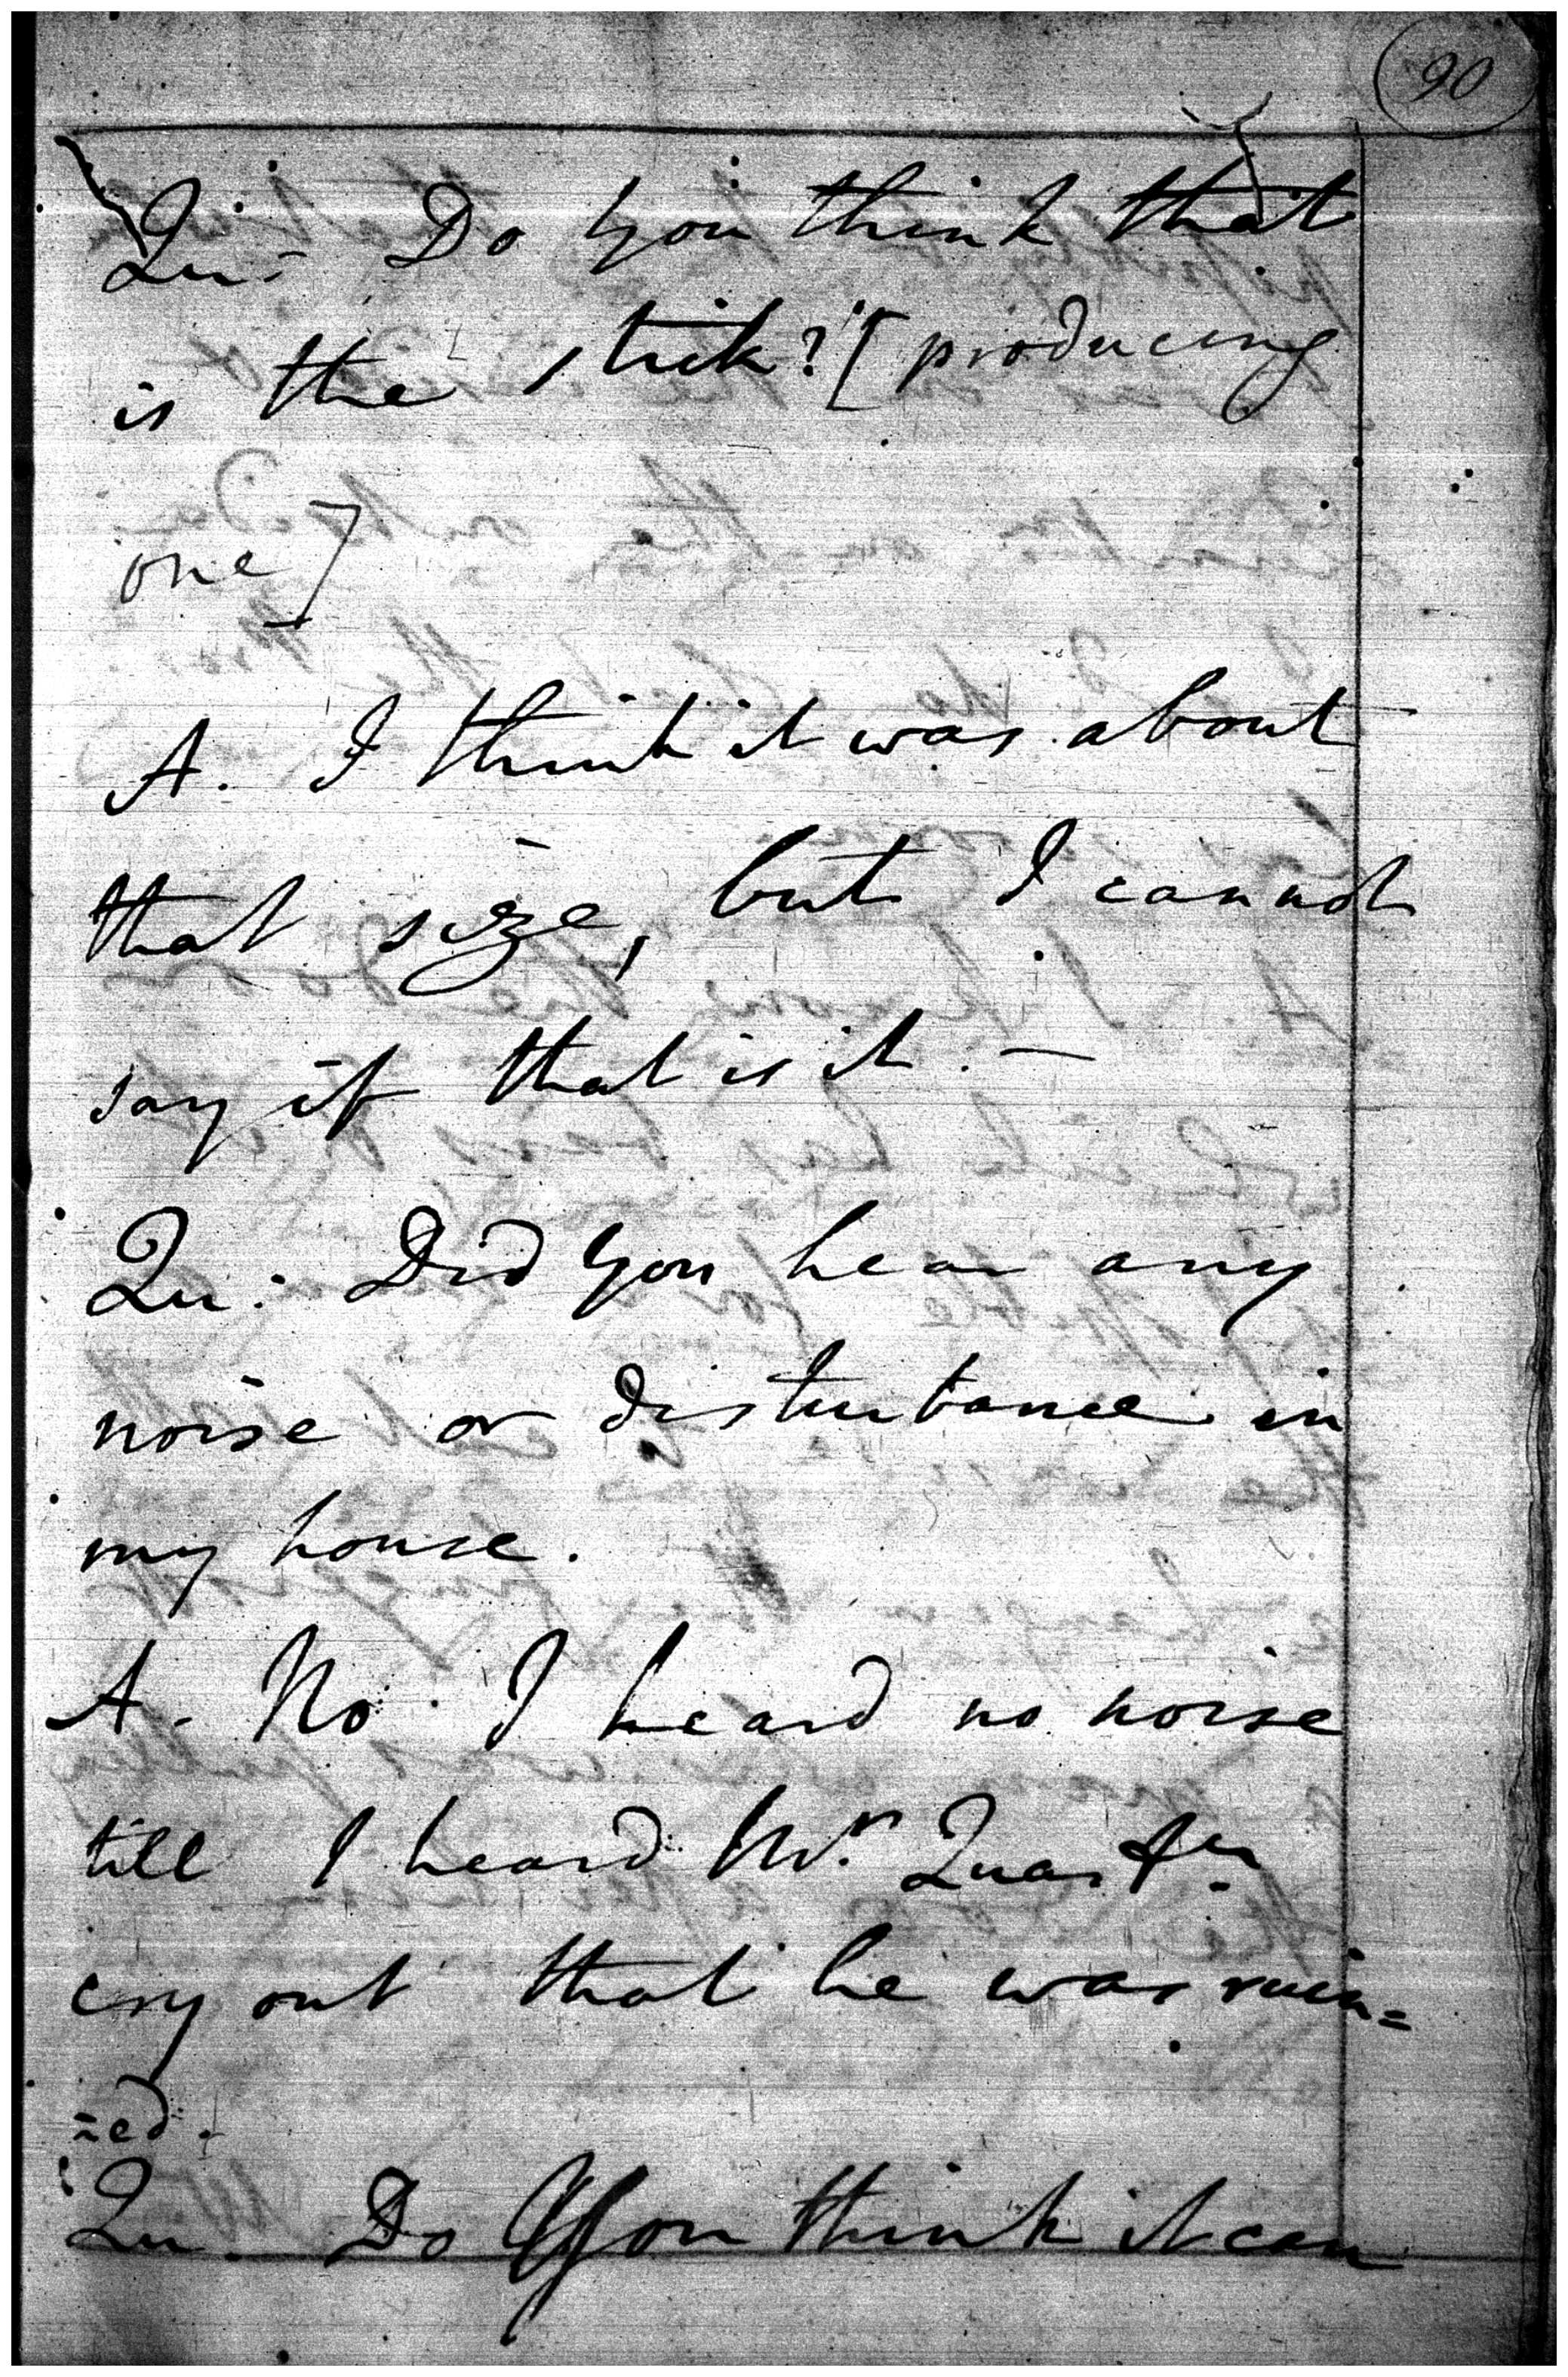 90
Qu: Do you think that
is the stick? [producing
one]
A. I think it was about
that size, but I cannot
say if that is it. —
Qu: Did you hear any
noise or disturbance in
my house.
A. No. I heard no noise
till I heard Mr.
cry out that he was ruin=
=ed.
Qu. Do you think it can